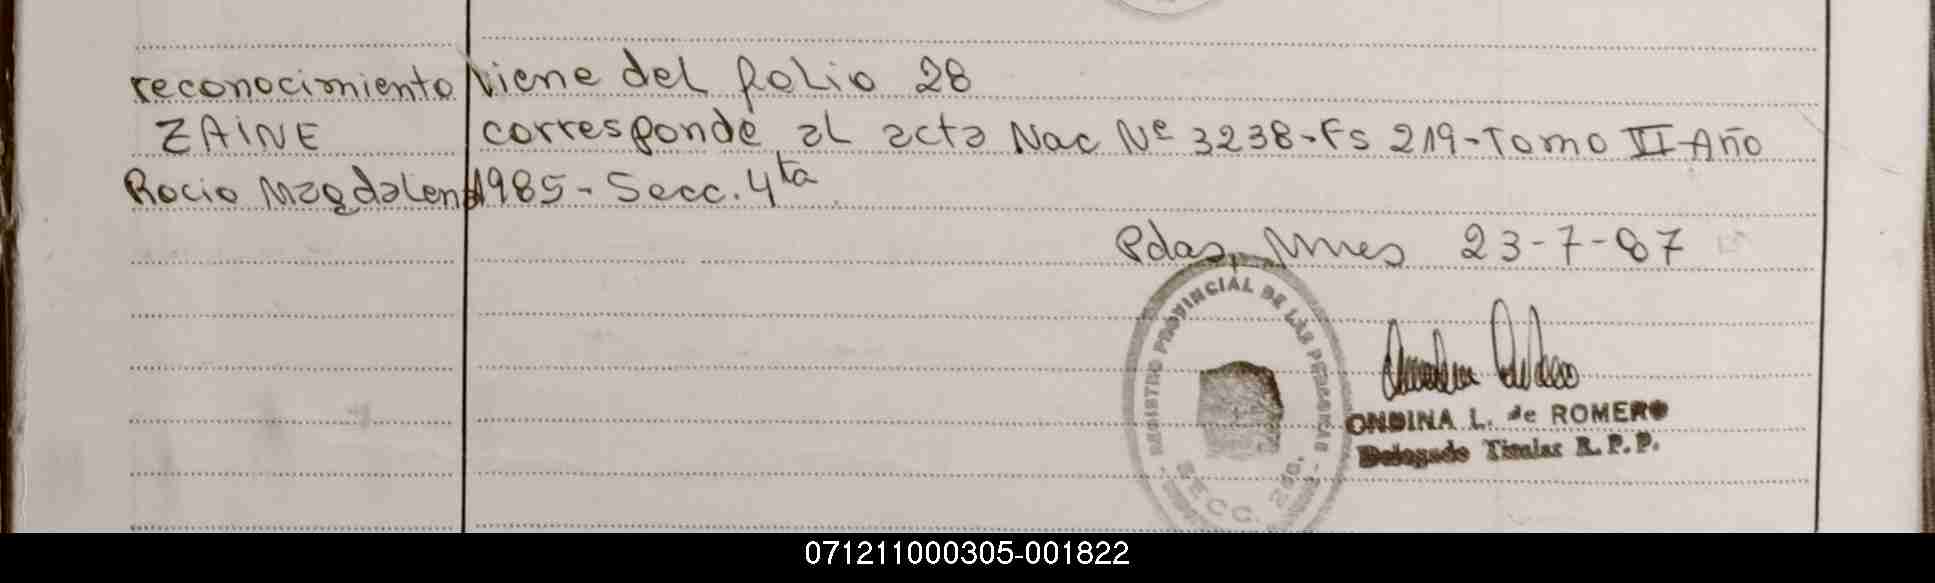 reconocimiento viene del folio 28
ZAINE corresponde al acta Nac Nº 3238-Fs 219-Tomo VI-Año
Rocio Magdalena 1985- Secc. 4ta
Pdas, Mnes 23-7-87
REGISTRO PROVINCIAL DE LAS PERSONAS
SECC. 2da.
ONDINA L. de ROMERO
Delegado Titular R. P. P.
071211000305-001822